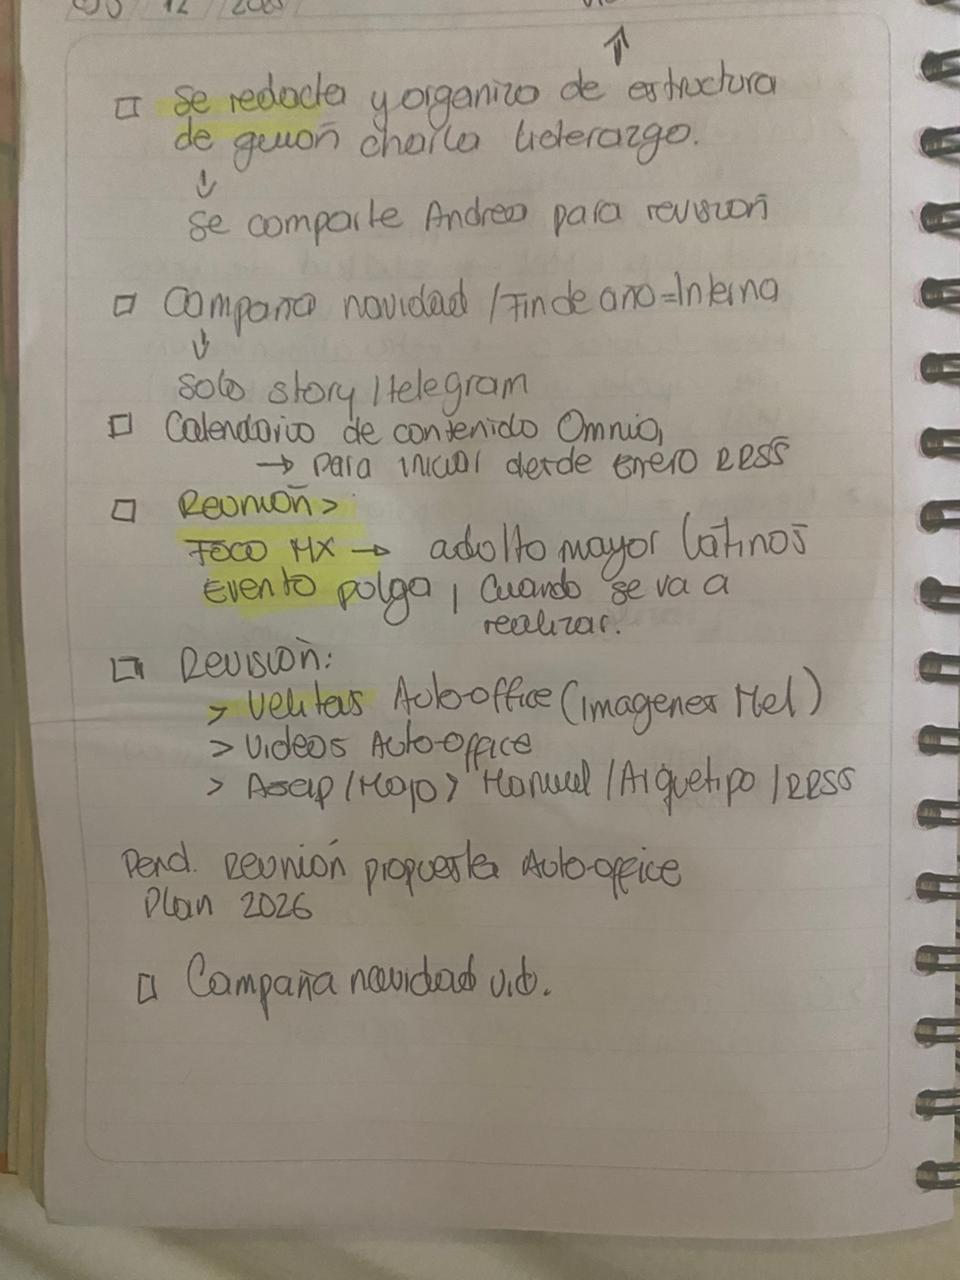 12 / 2025
□ Se redacta y organizo de estructura
de guion charla liderazgo.
↓
se comparte Andrea para revision
□ Campaña navidad / Fin de año = Interna
↓
solo story / telegram
□ Calendario de contenido Omnia,
→ para iniciar desde enero RRSS
□ Reunión >
FOCO MX → adulto mayor latinos
Evento pulga, cuando se va a
realizar.
□ Revisión:
> Velitas Auto-office (imagenes Mel)
> Videos Auto-office
> Asap / Mojo > Manual / Arquetipo / RRSS
Pend. reunión propuesta Auto-office
Plan 2026
□ Campaña navidad v.b.